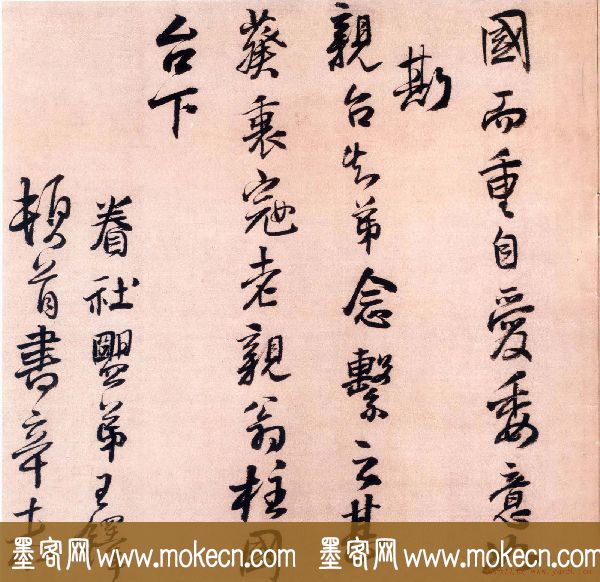 國而重自愛委意
斯
親台失弟念繫之甚
葵衷寇老親翁柱國
台下
眷社盟弟王鐸
頓首書辛
墨客网 www.mokecn.com 墨客网 www.mokecn.com